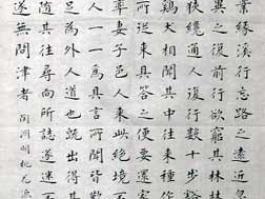 業緣溪行忘路之遠近
異之復前行欲窮其林
狹纔通人復行數十步
鷄犬相聞其中往來種作
所從來具答之便要還家
率妻子邑人來此絕境不
人一一為具言所聞皆歎
足為外人道也既出得其
隨其往尋向所誌遂迷不
遂無問津者 桃花源